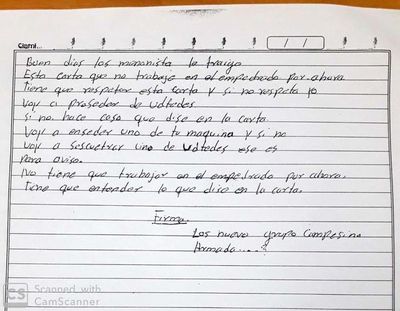 Claro!...
/ /
Buen dias los mononista le traigo
Esta carta que no trabaje en el empedrado por ahora
Tiene que respetar esta carta y si no respeta yo
Voy a proseder de udtedes
si no. hace caso que dise en la carta
Voy a enseder uno de tu maquina y si no
voy a sescuetrar uno de udtedes ese es
para aviso.
No tiene que trabajar en el empedrado por ahora.
Tiene que entender lo que dise en la carta.
Firma
Los nuevo grupo campesino
Armada....
CS Scanned with
CamScanner